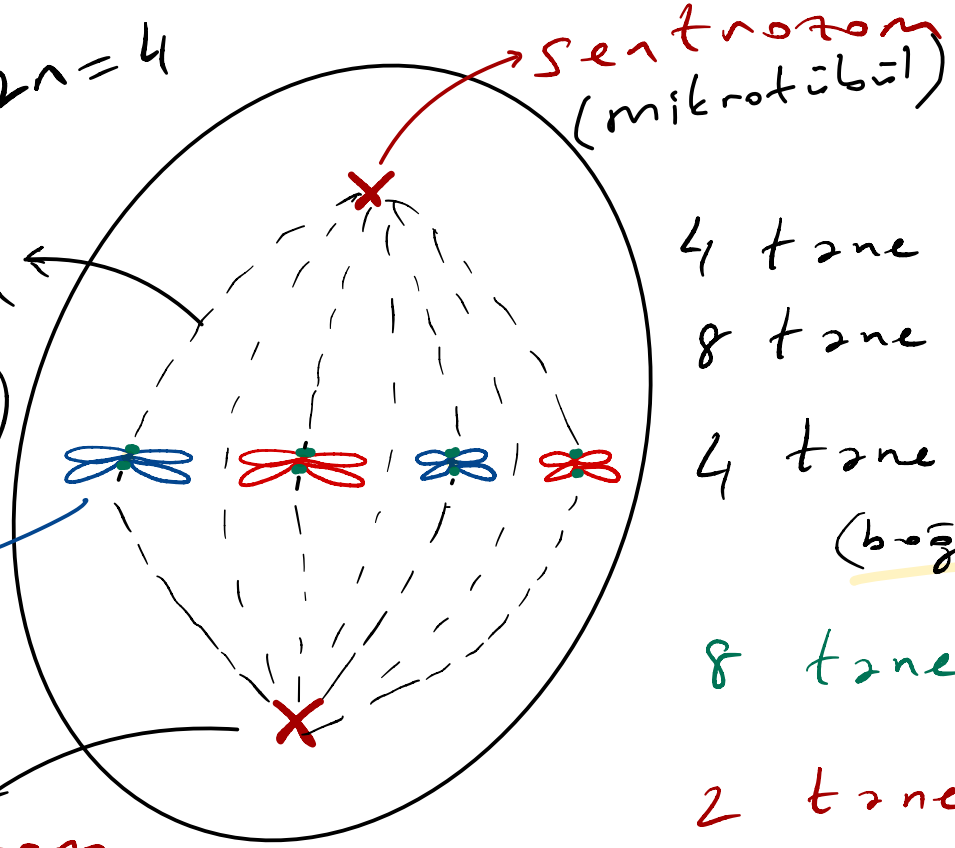 2n = 4
sentrozom
(mikrotübül)
4 tane
8 tane
4 tane
8 tane
2 tane